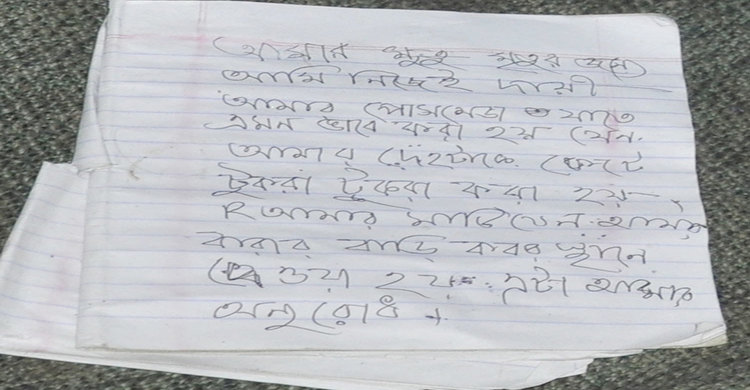 আমার মৃত্যু মৃত্যুর জন্য
আমি নিজেই দায়ী
আমার পোসমেডা ও যাতে
এমন ভাবে করা হয় যেন.
আমার দেহটাকে কেটে
টুকরা টুকরা করা হয়,
R আমার মাটি যেন আমার
বাবার বাড়ি কবর স্থানে
দেওয়া হয়. এটা আমার
অনুরোধ +